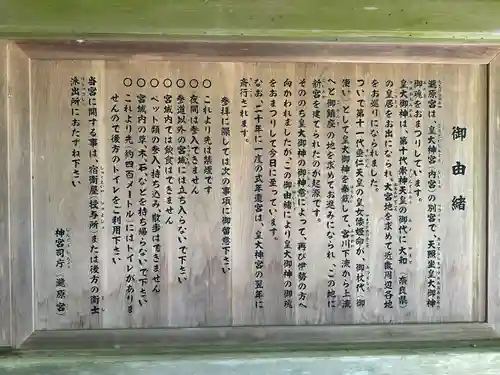 御由緒
瀧原宮は、皇大神宮(内宮)の別宮で、天照坐皇大御神
御魂をおまつりしています。
皇大御神は、第十代崇神天皇の御代に大和(奈良県)
の皇居をお出になられ、大宮地を求めて近畿周辺各地
をお巡りになられました。
ついで第十一代垂仁天皇の皇女倭姫命が、御杖代(御
使い)として皇大御神を奉戴して、宮川下流から上流
へと御鎮座の地を求めてお進みになられ、この地に
新宮を建てられたのが起源です。
そののち皇大御神の御神意によって、再び伊勢の方へ
向かわれましたが、この御由緒により皇大御神の御魂
をおまつりして今日に至っています。
なお、二十年に一度の式年遷宮は、皇大神宮の翌年に
斎行されます。
参拝に際しては次の事項に御留意下さい
○これより先は禁煙です
○夜間は参入できません
○参道以外の宮域には立ち入らないで下さい
○宮域内では飲食はできません
○ペット類の参入、持ち込み、散歩はできません
○宮域内の草、木、石、などを持ち帰らないで下さい
○これより先(約四百メートル)にはトイレがありま
せんので後方のトイレをご利用下さい
当宮に関する事は、宿衛屋(授与所)または後方の衛士
派出所におたずね下さい
神宮司庁(瀧原宮)